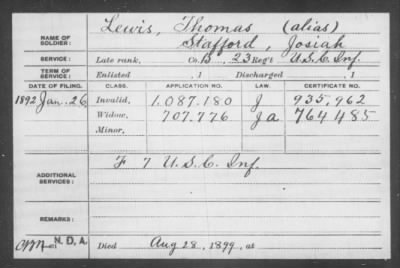 NAME OF SOLDIER: Lewis, Thomas (alias)
Stafford, Josiah
SERVICE: Late rank, Co. B, 23 Reg't U.S.C. Inf.
TERM OF SERVICE: Enlisted , 1 Discharged , 1
DATE OF FILING. CLASS. APPLICATION NO. LAW. CERTIFICATE NO.
1892 Jan. 26 Invalid, 1.087.180 J 935,962
Widow, 707.776 Ja 764485
Minor,
ADDITIONAL SERVICES: F 7 U.S.C. Inf.
REMARKS:
N. D. A. Died Aug 28, 1899, at